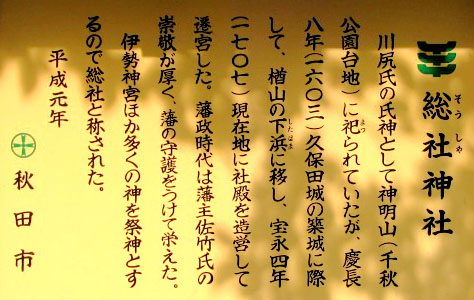 総社神社
そうしゃ
川尻氏の氏神として神明山(千秋
公園台地)に祀られていたが、慶長
まつ
八年(一六〇三)久保田城の築城に際
して、楢山の下浜に移し、宝永四年
したはま
(一七〇七)現在地に社殿を造営して
遷宮した。藩政時代は藩主佐竹氏の
崇敬が厚く、藩の守護をうけて栄えた。
伊勢神宮ほか多くの神を祭神とす
るので総社と称された。
平成元年
秋田市